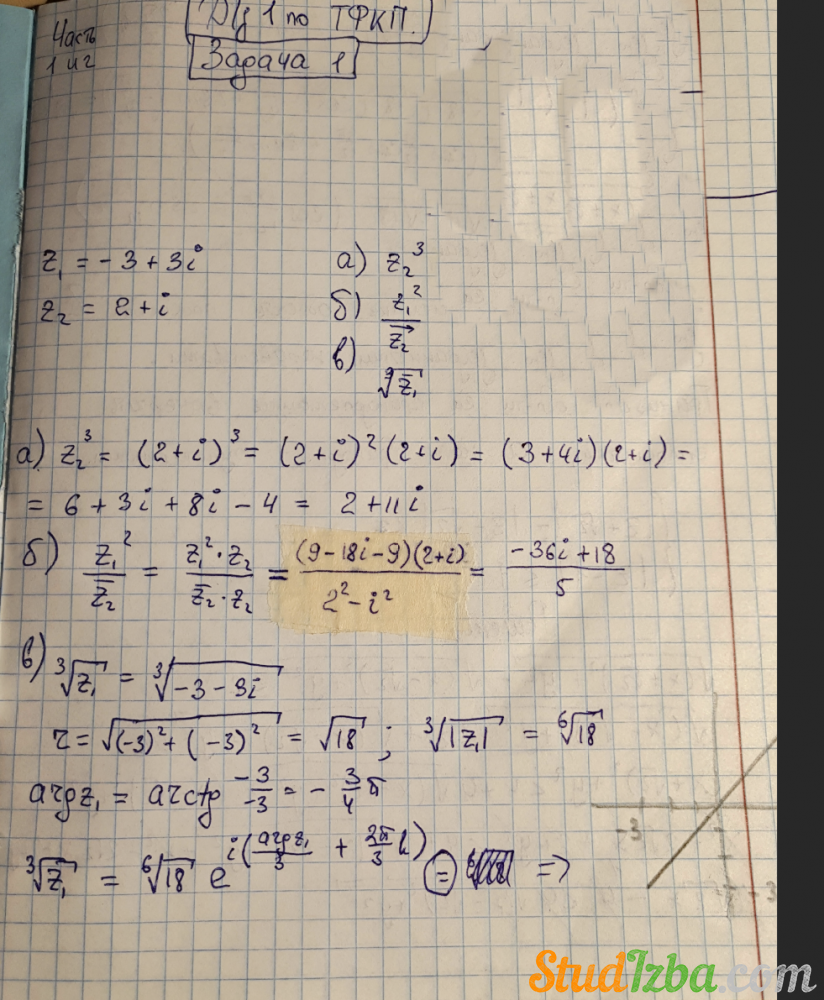 Часть
1 и 2
ДЗ 1 по ТФКП.
Задача 1
z₁ = -3 + 3i
z₂ = 2 + i
а) z₂³
б) z₁² / z̅₂
в) ∛z₁
а) z₂³ = (2+i)³ = (2+i)²(2+i) = (3+4i)(2+i) =
= 6 + 3i + 8i - 4 = 2 + 11i
б) z₁² / z̅₂ = z₁²·z₂ / z̅₂·z₂ = (9-18i-9)(2+i) / 2²-i² = -36i+18 / 5
в) ∛z₁ = ∛(-3-3i)
r = √((-3)²+(-3)²) = √18 ; ∛|z₁| = ⁶√18
arg z₁ = arctg -3/-3 = -3/4 π
∛z₁ = ⁶√18 e^{i(arg z₁/3 + 2π/3 k)} = =>
-3
-3
StudIzba.com